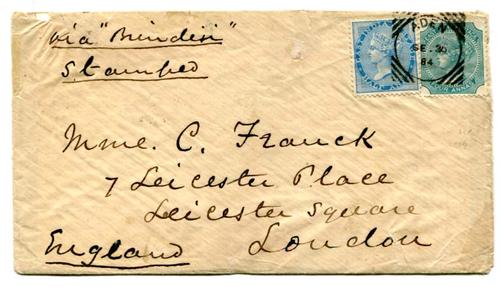 via "Brindisi"
Stamped
ADEN
SE. 30
84
FOUR ANNAS
Mme. C. Franck
7 Leicester Place
Leicester Square
England London